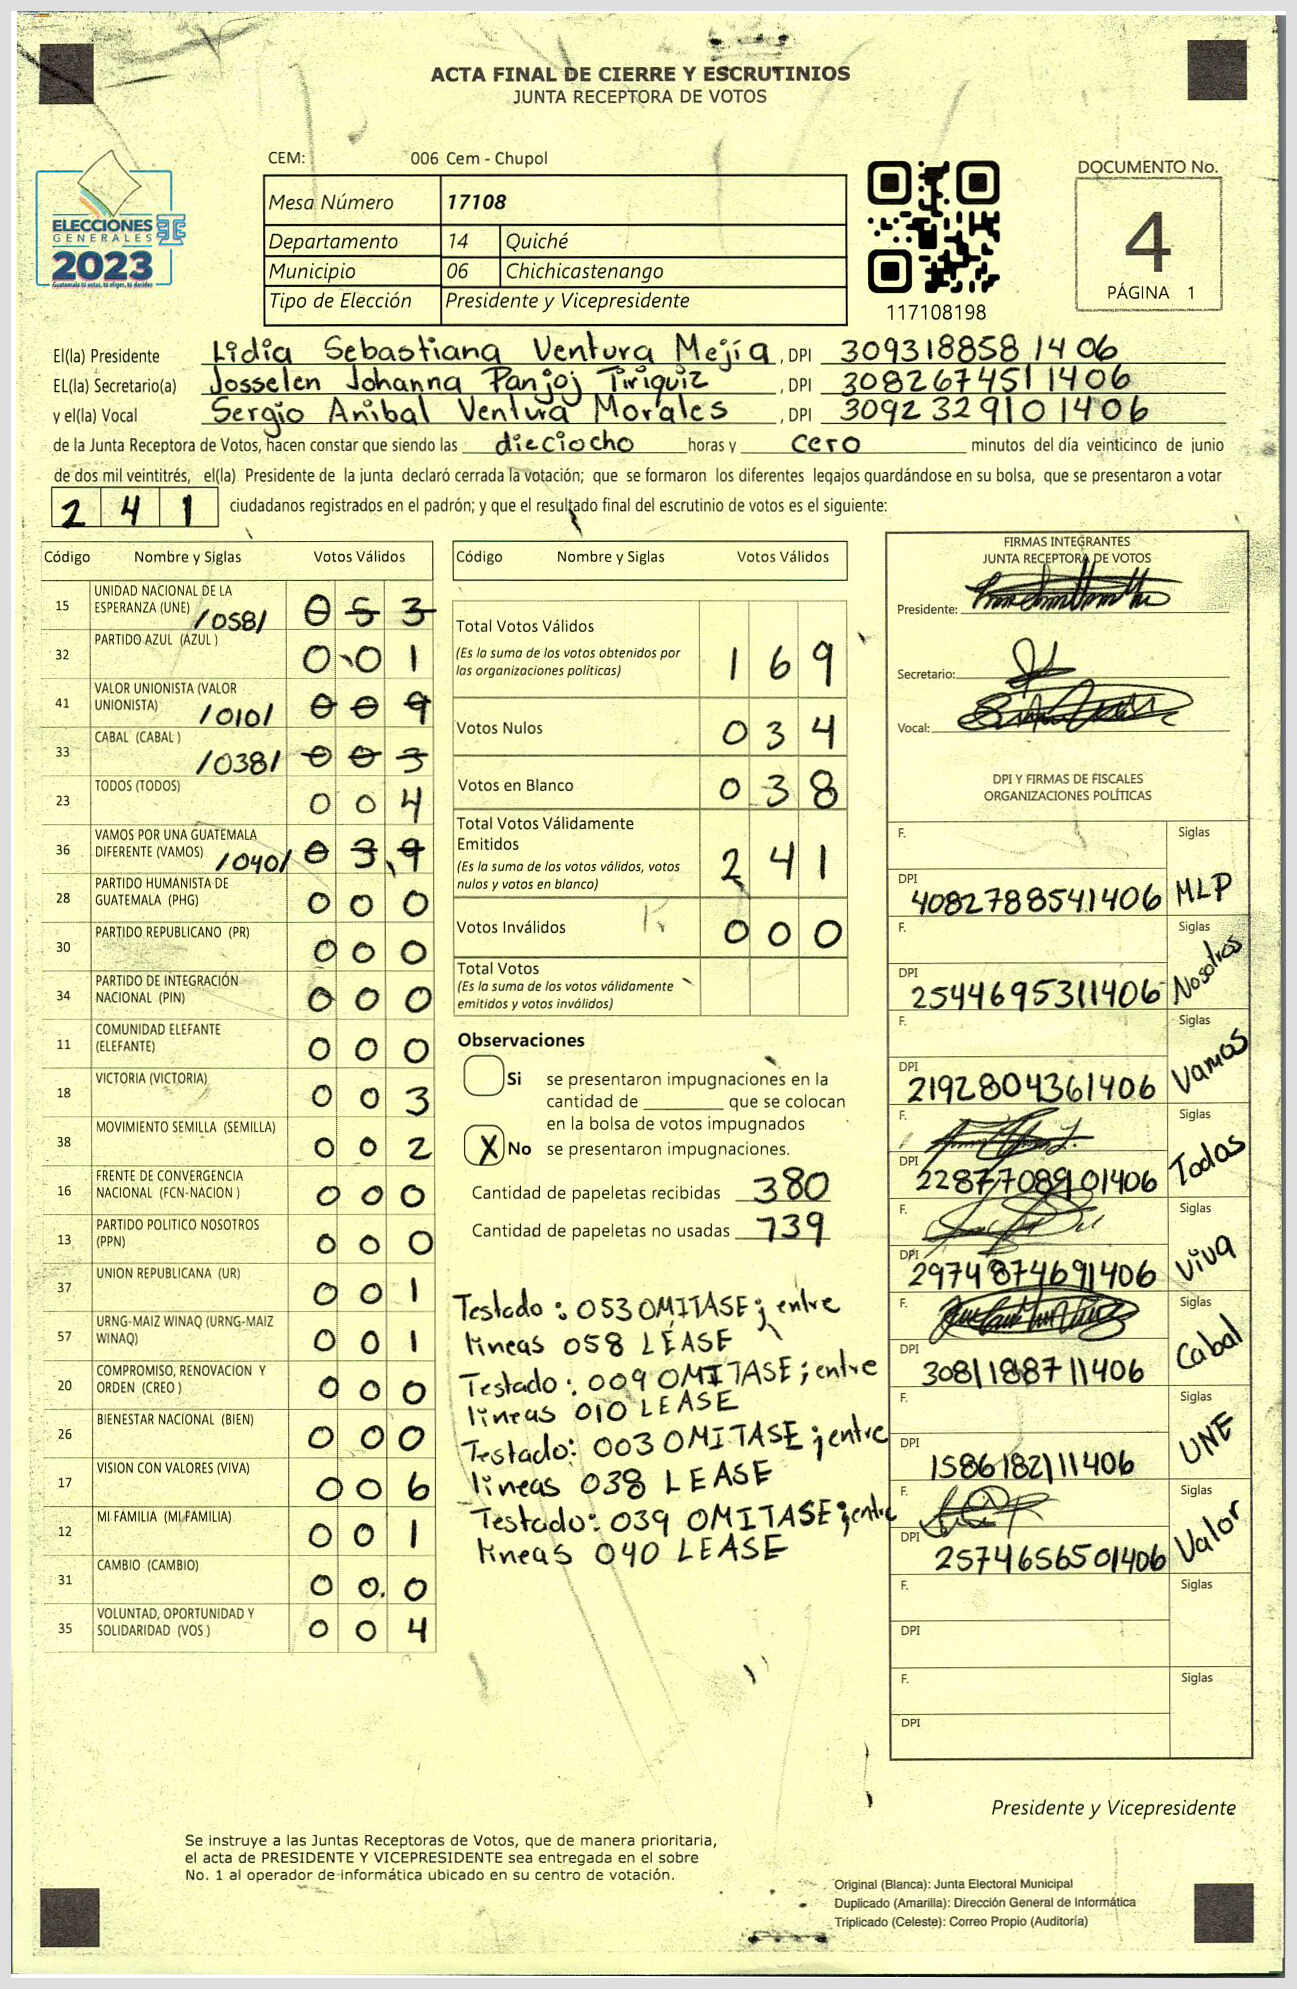 ACTA FINAL DE CIERRE Y ESCRUTINIOS
JUNTA RECEPTORA DE VOTOS
CEM: 006 Cem - Chupol
ELECCIONES
GENERALES
2023
Guatemala tú votas, tú eliges, tú decides
Mesa Número 17108
Departamento 14 Quiché
Municipio 06 Chichicastenango
Tipo de Elección Presidente y Vicepresidente
117108198
DOCUMENTO No.
4
PÁGINA 1
El(la) Presidente Lidia Sebastiana Ventura Mejía, DPI 309318858 1406
EL(la) Secretario(a) Josselen Johanna Panjoj Tiriquiz, DPI 3082674511406
y el(la) Vocal Sergio Anibal Ventura Morales, DPI 3092329101406
de la Junta Receptora de Votos, hacen constar que siendo las dieciocho horas y cero minutos del día veinticinco de junio
de dos mil veintitrés, el(la) Presidente de la junta declaró cerrada la votación; que se formaron los diferentes legajos guardándose en su bolsa, que se presentaron a votar
2 4 1 ciudadanos registrados en el padrón; y que el resultado final del escrutinio de votos es el siguiente:
Código Nombre y Siglas Votos Válidos
15 UNIDAD NACIONAL DE LA ESPERANZA (UNE) /058/ 0 5 3
32 PARTIDO AZUL (AZUL ) 0 0 1
41 VALOR UNIONISTA (VALOR UNIONISTA) /010/ 0 0 9
33 CABAL (CABAL ) /038/ 0 0 3
23 TODOS (TODOS) 0 0 4
36 VAMOS POR UNA GUATEMALA DIFERENTE (VAMOS) /040/ 0 3 9
28 PARTIDO HUMANISTA DE GUATEMALA (PHG) 0 0 0
30 PARTIDO REPUBLICANO (PR) 0 0 0
34 PARTIDO DE INTEGRACIÓN NACIONAL (PIN) 0 0 0
11 COMUNIDAD ELEFANTE (ELEFANTE) 0 0 0
18 VICTORIA (VICTORIA) 0 0 3
38 MOVIMIENTO SEMILLA (SEMILLA) 0 0 2
16 FRENTE DE CONVERGENCIA NACIONAL (FCN-NACION ) 0 0 0
13 PARTIDO POLITICO NOSOTROS (PPN) 0 0 0
37 UNION REPUBLICANA (UR) 0 0 1
57 URNG-MAIZ WINAQ (URNG-MAIZ WINAQ) 0 0 1
20 COMPROMISO, RENOVACION Y ORDEN (CREO ) 0 0 0
26 BIENESTAR NACIONAL (BIEN) 0 0 0
17 VISION CON VALORES (VIVA) 0 0 6
12 MI FAMILIA (MI FAMILIA) 0 0 1
31 CAMBIO (CAMBIO) 0 0 0
35 VOLUNTAD, OPORTUNIDAD Y SOLIDARIDAD (VOS ) 0 0 4
Código Nombre y Siglas Votos Válidos
Total Votos Válidos
(Es la suma de los votos obtenidos por
las organizaciones políticas) 1 6 9
Votos Nulos 0 3 4
Votos en Blanco 0 3 8
Total Votos Válidamente
Emitidos
(Es la suma de los votos válidos, votos
nulos y votos en blanco) 2 4 1
Votos Inválidos 0 0 0
Total Votos
(Es la suma de los votos válidamente
emitidos y votos inválidos)
Observaciones
Si se presentaron impugnaciones en la
cantidad de ________ que se colocan
en la bolsa de votos impugnados
X No se presentaron impugnaciones.
Cantidad de papeletas recibidas 380
Cantidad de papeletas no usadas 739
Testado: 053 OMITASE; entre
lineas 058 LÉASE
Testado: 009 OMITASE; entre
lineas 010 LEASE
Testado: 003 OMITASE; entre
lineas 038 LEASE
Testado: 039 OMITASE; entre
lineas 040 LEASE
FIRMAS INTEGRANTES
JUNTA RECEPTORA DE VOTOS
Presidente:
Secretario:
Vocal:
DPI Y FIRMAS DE FISCALES
ORGANIZACIONES POLÍTICAS
F. Siglas
DPI 4082788541406 MLP
F. Siglas
DPI 2544695311406 Nosotros
F. Siglas
DPI 2192804361406 Vamos
F. Siglas
DPI 2287708901406 Todos
F. Siglas
DPI 2974874691406 Viva
F. Siglas
DPI 3081188711406 Cabal
F. Siglas
DPI 1586182111406 UNE
F. Siglas
DPI 2574656501406 Valor
F. Siglas
DPI
F. Siglas
DPI
Presidente y Vicepresidente
Se instruye a las Juntas Receptoras de Votos, que de manera prioritaria,
el acta de PRESIDENTE Y VICEPRESIDENTE sea entregada en el sobre
No. 1 al operador de informática ubicado en su centro de votación.
Original (Blanca): Junta Electoral Municipal
Duplicado (Amarilla): Dirección General de Informática
Triplicado (Celeste): Correo Propio (Auditoría)